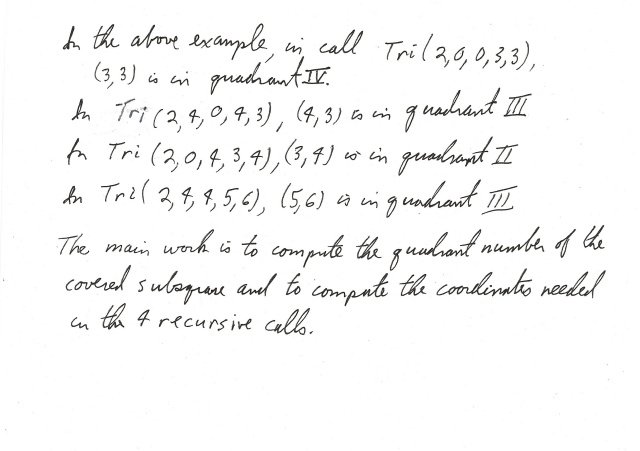 In the above example, in call Tri(2,0,0,3,3),
(3,3) is in quadrant IV.
In Tri(2,4,0,4,3), (4,3) is in quadrant III
In Tri(2,0,4,3,4), (3,4) is in quadrant II
In Tri(2,4,4,5,6), (5,6) is in quadrant III
The main work is to compute the quadrant number of the
covered subsquare and to compute the coordinates needed
in the 4 recursive calls.